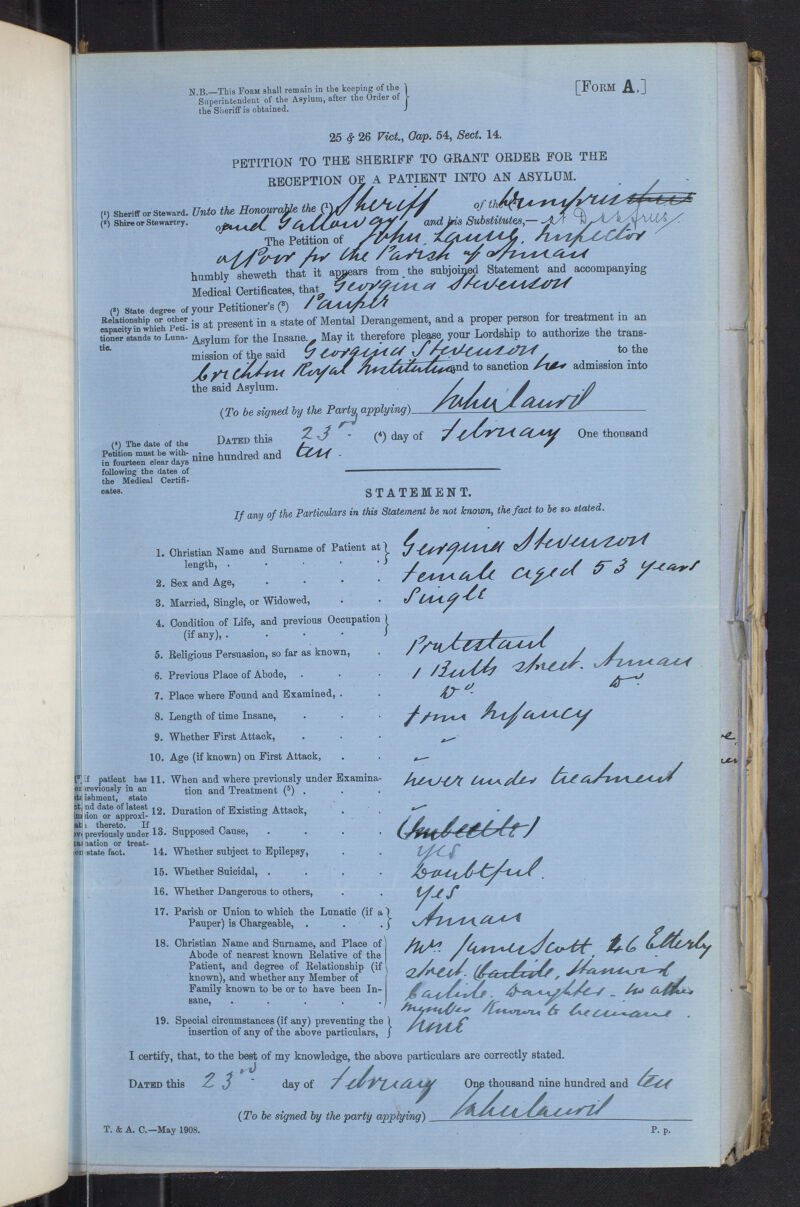 N.B.—This Form shall remain in the keeping of the
Superintendent of the Asylum, after the Order of
the Sheriff is obtained.
[Form A.]
25 & 26 Vict., Cap. 54, Sect. 14.
PETITION TO THE SHERIFF TO GRANT ORDER FOR THE
RECEPTION OF A PATIENT INTO AN ASYLUM.
(1) Sheriff or Steward.
(2) Shire or Stewartry.
Unto the Honourable the (1) Sheriff of the (2) Dumfries
and Galloway and his Substitutes,— at Dumfries
The Petition of John Laurie, Inspector
of Poor for the Parish of Annan
humbly sheweth that it appears from the subjoined Statement and accompanying
Medical Certificates, that Georgina Stevenson
(3) State degree of
Relationship or other
capacity in which Peti-
tioner stands to Luna-
tic.
your Petitioner's (3) Pauper
is at present in a state of Mental Derangement, and a proper person for treatment in an
Asylum for the Insane. May it therefore please your Lordship to authorize the trans-
mission of the said Georgina Stevenson to the
Crichton Royal Institution and to sanction her admission into
the said Asylum.
(To be signed by the Party applying) John Laurie
(4) The date of the
Petition must be with-
in fourteen clear days
following the dates of
the Medical Certifi-
cates.
DATED this 23rd. (4) day of February One thousand
nine hundred and ten.
STATEMENT.
If any of the Particulars in this Statement be not known, the fact to be so stated.
1. Christian Name and Surname of Patient at
length, . . . . . Georgina Stevenson
2. Sex and Age, . . . . Female aged 53 years
3. Married, Single, or Widowed, . . Single
4. Condition of Life, and previous Occupation
(if any), . . . .
5. Religious Persuasion, so far as known, . Protestant
6. Previous Place of Abode, . . . 1 Butts street. Annan
7. Place where Found and Examined, . . Do. Do.
8. Length of time Insane, . . . From Infancy
9. Whether First Attack, . . . "
10. Age (if known) on First Attack, . . "
(5) If patient has
previously in an
ishment, state
nd date of latest
sion or approxi-
thereto. If
previously under
nation or treat-
state fact.
11. When and where previously under Examina-
tion and Treatment (5) . . . never under treatment
12. Duration of Existing Attack, . . "
13. Supposed Cause, . . . . (Imbecile)
14. Whether subject to Epilepsy, . . yes
15. Whether Suicidal, . . . . Doubtful.
16. Whether Dangerous to others, . . yes
17. Parish or Union to which the Lunatic (if a
Pauper) is Chargeable, . . . Annan
18. Christian Name and Surname, and Place of
Abode of nearest known Relative of the
Patient, and degree of Relationship (if
known), and whether any Member of
Family known to be or to have been In-
sane, . . . . . .
Mrs. James Scott 26 Etterby
street. Carlisle, Stanwix
Carlisle. Daughter - no other
member known to be insane.
19. Special circumstances (if any) preventing the
insertion of any of the above particulars, None
I certify, that, to the best of my knowledge, the above particulars are correctly stated.
DATED this 23rd. day of February One thousand nine hundred and ten
(To be signed by the party applying) John Laurie
T. & A. C.—May 1908.
P. p.